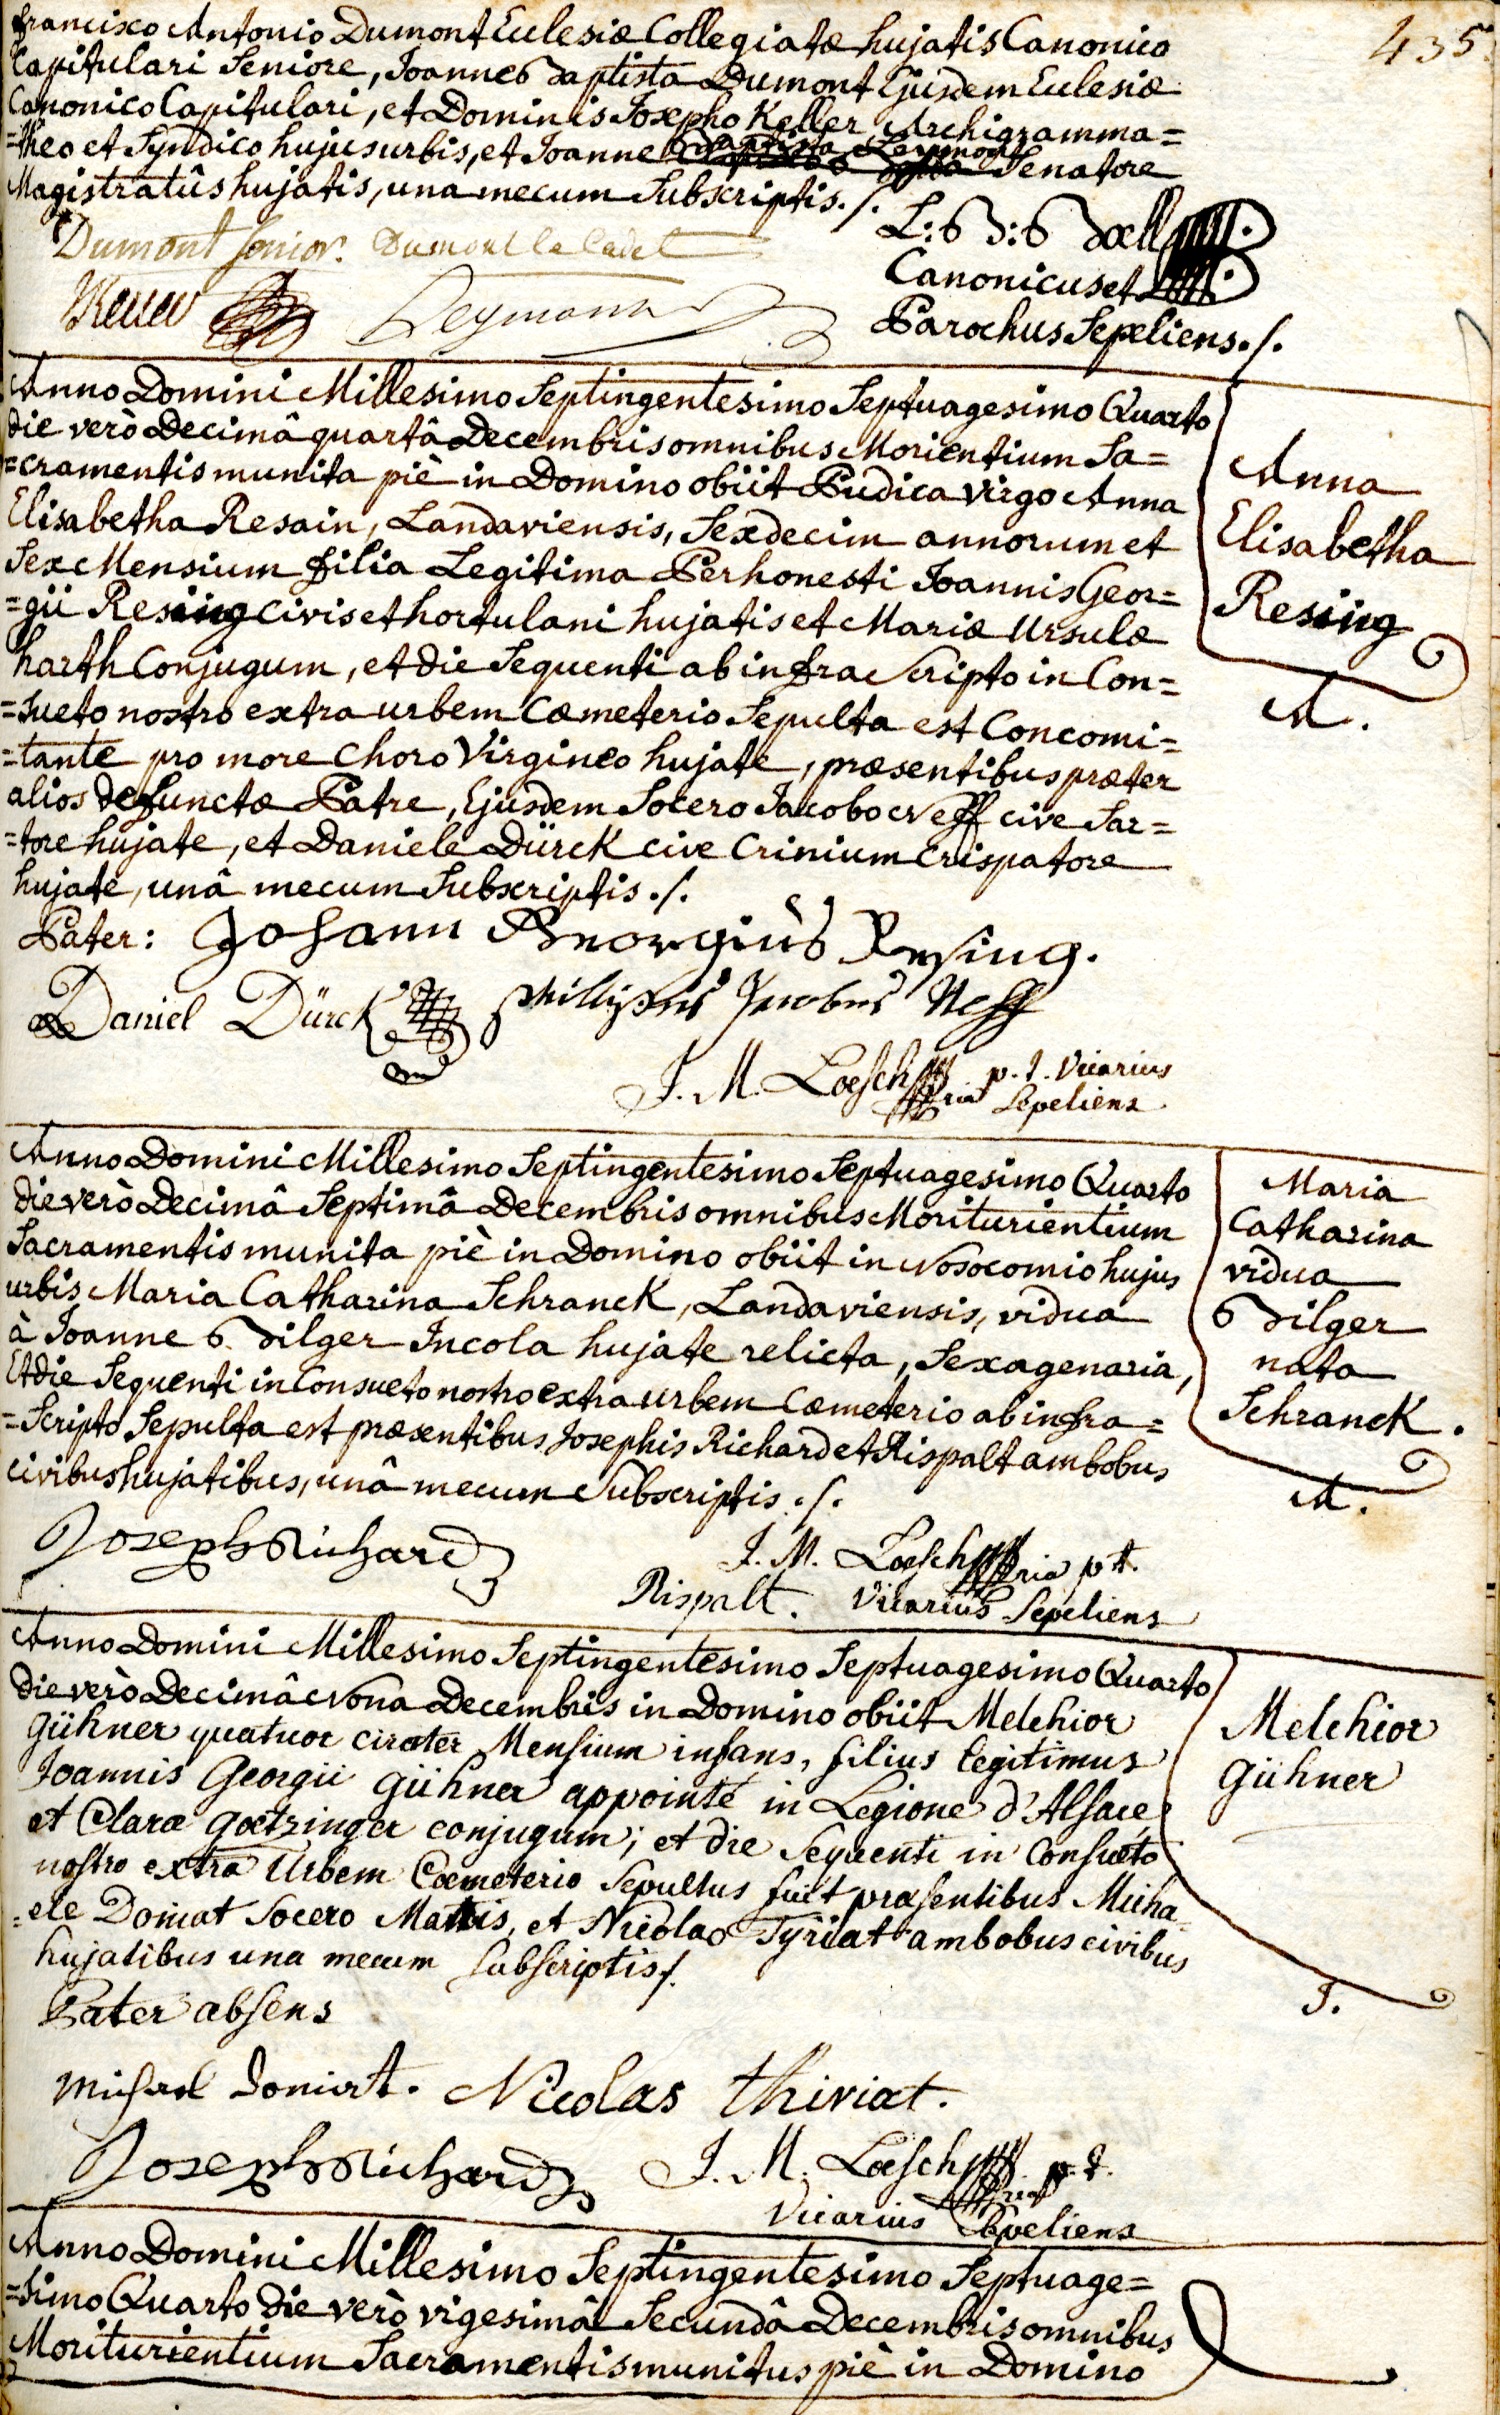 435.
Francisco Antonio Dumont Eclesiæ Collegiatæ hujatis Canonico
Capitulari Seniore, Joanne Baptista Dumont Ejusdem Eclesiæ
Canonico Capitulari, et Dominis Josepho Keller Archigramma=
=theo et Syndico hujus urbis, et Joanne Baptista Leymont Senatore
Magistratûs hujatis, una mecum Subscriptis./.
Dumont senior. Dumont le Cadet
L: B: Boell
Canonicus et
Parochus Sepeliens./.
Keller Leymann
Anno Domini Millesimo Septingentesimo Septuagesimo Quarto
die verò Decimâ quartâ Decembris omnibus Morientium Sa=
=cramentis munita piè in Domino obiit Pudica virgo Anna
Elisabetha Resain, Landaviensis, Sexdecim annorum et
Sex Mensium filia Legitima Perhonesti Joannis Geor=
=gii Resing civis et hortulani hujatis et Mariæ Ursulæ
harth Conjugum, et die Sequenti ab infra Scripto in Con=
=sueto nostro extra urbem Cœmeterio Sepulta est Concomi=
=tante pro more Choro Virgineo hujate, præsentibus præter
alios defunctæ Patre, Ejusdem Socero Jacobo Neff cive Sar=
=tore hujate, et Daniele Dürck cive Crinium Crispatore
hujate, unâ mecum Subscriptis./.
Anna
Elisabetha
Resing
A.
Pater: Johann Georgius Resing.
Daniel Dürck Phillipus Jacobus Neff
J. M. Loesch p. t. Vicarius
Sepeliens
Anno Domini Millesimo Septingentesimo Septuagesimo Quarto
die verò Decimâ Septimâ Decembris omnibus Moriturientium
Sacramentis munita piè in Domino obiit in Nosocomio hujus
urbis Maria Catharina Schranck, Landaviensis, vidua
à Joanne Bilger Incola hujate relicta, Sexagenaria,
Et die Sequenti in Consueto nostro extra urbem Cœmeterio ab infra=
=Scripto Sepulta est præsentibus Josephis Richard et Rispalt ambobus
civibus hujatibus, unâ mecum Subscriptis./.
Maria
Catharina
vidua
Bilger
nata
Schranck.
A.
Joseph Richard
J. M. Loesch p t.
Rispalt. Vicarius Sepeliens
Anno Domini Millesimo Septingentesimo Septuagesimo Quarto
die verò Decimâ Nona Decembris in Domino obiit Melchior
Gühner quatuor circiter Mensium infans, filius legitimus
Joannis Georgii Gühner appointé in Legione d'Alsace
et Claræ Goetzinger conjugum; et die Sequenti in Consueto
nostro extra Urbem Cœmeterio Sepultus fuit præsentibus Micha
=ele Domiat Socero Matris, et Nicolao Tyriat ambobus civibus
hujatibus una mecum Subscriptis/.
Melchior
Gühner
J.
Pater absens
Michael Domiat. Nicolas Thiriat.
Joseph Richard J. M. Loesch p. t.
Vicarius Sepeliens
Anno Domini Millesimo Septingentesimo Septuage=
=simo Quarto die verò vigesimâ Secundâ Decembris omnibus
Moriturientium Sacramentis munitus piè in Domino